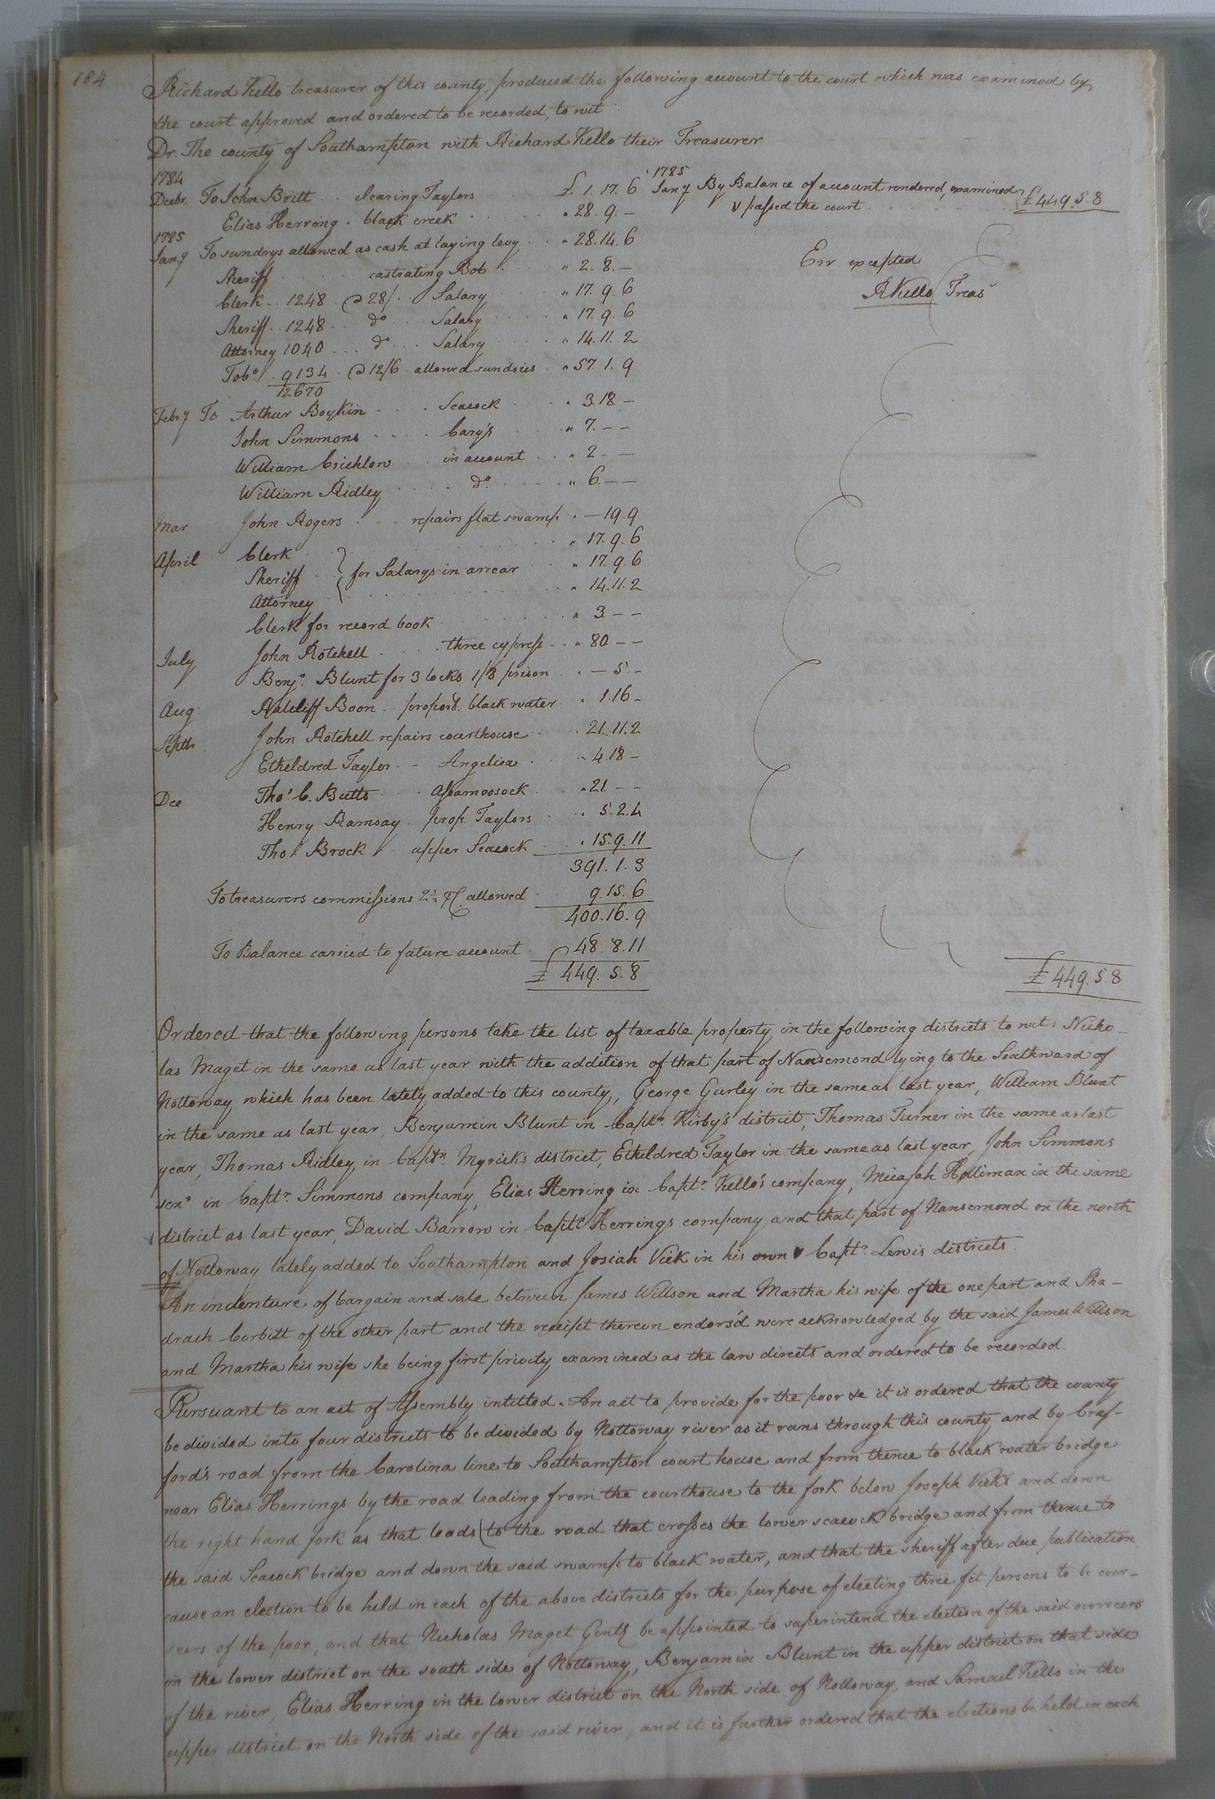 184
Richard Kello treasurer of this county produced the following account to the court which was examined by
the court approved and ordered to be recorded, to wit
Dr. The county of Southampton with Richard Kello their Treasurer
1784
Decbr. To John Britt . . clearing Taylors £. 1. 17. 6
Elias Herring . black creek . . . . " 28. 9. –
1785
Jany To sundrys allowed as cash at laying levy . . " 28. 14. 6
Sheriff . . . . castrating Bob . . . " 2. 8. –
Clerk . . 1248 . @ 28/. Salary . . . " 17. 9. 6
Sheriff . . 1248 . . do . . Salary . . " 17. 9. 6
Attorney 1040 . . . do . . . Salary . . " 14. 11. 2
Tobo. 9134 . @ 12/6 . allowed sundries . " 57 1. 9
12670
Feby To Arthur Boykin . . . . Seacock . . . " 3. 18 –
John Simmons . . . . Cary's . . . " 7. – –
William Crichlow . . in account . . " 2 – –
William Ridley . . . . do . . . . " 6 – –
Mar John Rogers . . . repairs flat swamp . " – 19. 9
April Clerk . . . . " 17. 9. 6
Sheriff } for Salarys in arrear . . " 17. 9. 6
Attorney . . . . " 14. 11. 2
Clerk for record book . . . . " 3 – –
July John Rotchell . . . . three cypress . . " 80 – –
Benja. Blunt for 3 locks 1/8 prison . " – 5 –
Aug Ratcliff Boon . . propor'd. black water . " 1. 16 –
Septr John Rotchell repairs courthouse . . " 21. 11. 2
Etheldred Taylor . – Angelica . . . " 4. 18 –
Dec Thos. C. Butts . . . Assamoosock . . " 21 – –
Henry Ramsay . prop. Taylors . . " 5. 2. 4
Thos Brock . upper Seacock . . " 15. 9. 11
391. 1. 3
To treasurers commissions 2½ pCt allowed . . 9. 15. 6
400. 16. 9
To Balance carried to future account 48. 8. 11
£ 449. 5. 8
1785
Jany By Balance of account rendered, examined
& passed the court . . . . £449. 5. 8
Err excepted
R Kello Treasr
£ 449. 5 8
Ordered that the following persons take the list of taxable property in the following districts to wit: Nicho-
las Maget in the same as last year with the addition of that part of Nansemond lying to the Southward of
Nottoway which has been lately added to this county, George Gurley in the same as last year, William Blunt
in the same as last year, Benjamin Blunt in Captn. Kirby's district, Thomas Turner in the same as last
year, Thomas Ridley in Captn. Myrick's district, Etheldred Taylor in the same as last year, John Simmons
senr in Captn. Simmons company, Elias Herring in Captn. Kello's company, Micajah Holliman in the same
district as last year, David Barrow in Captn Herrings company and that part of Nansemond on the north
of Nottoway lately added to Southampton and Josiah Vick in his own & Captn. Lewis districts.
An indenture of bargain and sale between James Willson and Martha his wife of the one part and Sha-
drach Corbitt of the other part and the receipt thereon endors'd were acknowledged by the said James Willson
and Martha his wife she being first privily examined as the law directs and ordered to be recorded.
Pursuant to an act of Assembly intitled . An act to provide for the poor &c it is ordered that the county
be divided into four districts to be divided by Nottoway river as it runs through this county and by Cross-
ford's road from the Carolina line to Southampton court house and from thence to black water bridge
near Elias Herrings by the road leading from the courthouse to the fork below Joseph Vicks and down
the right hand fork as that leads to the road that crosses the lower seacock bridge and from thence to
the said Seacock bridge and down the said swamp to black water, and that the sheriff after due publication
cause an election to be held in each of the above districts for the purpose of electing three fit persons to be over-
seers of the poor, and that Nicholas Maget Gentl be appointed to superintend the election of the said overseers
in the lower district on the south side of Nottoway, Benjamin Blunt in the upper district on that side
of the river, Elias Herring in the lower district on the North side of Nottoway and Samuel Kello in the
upper district on the North side of the said river, and it is further ordered that the elections be held in each